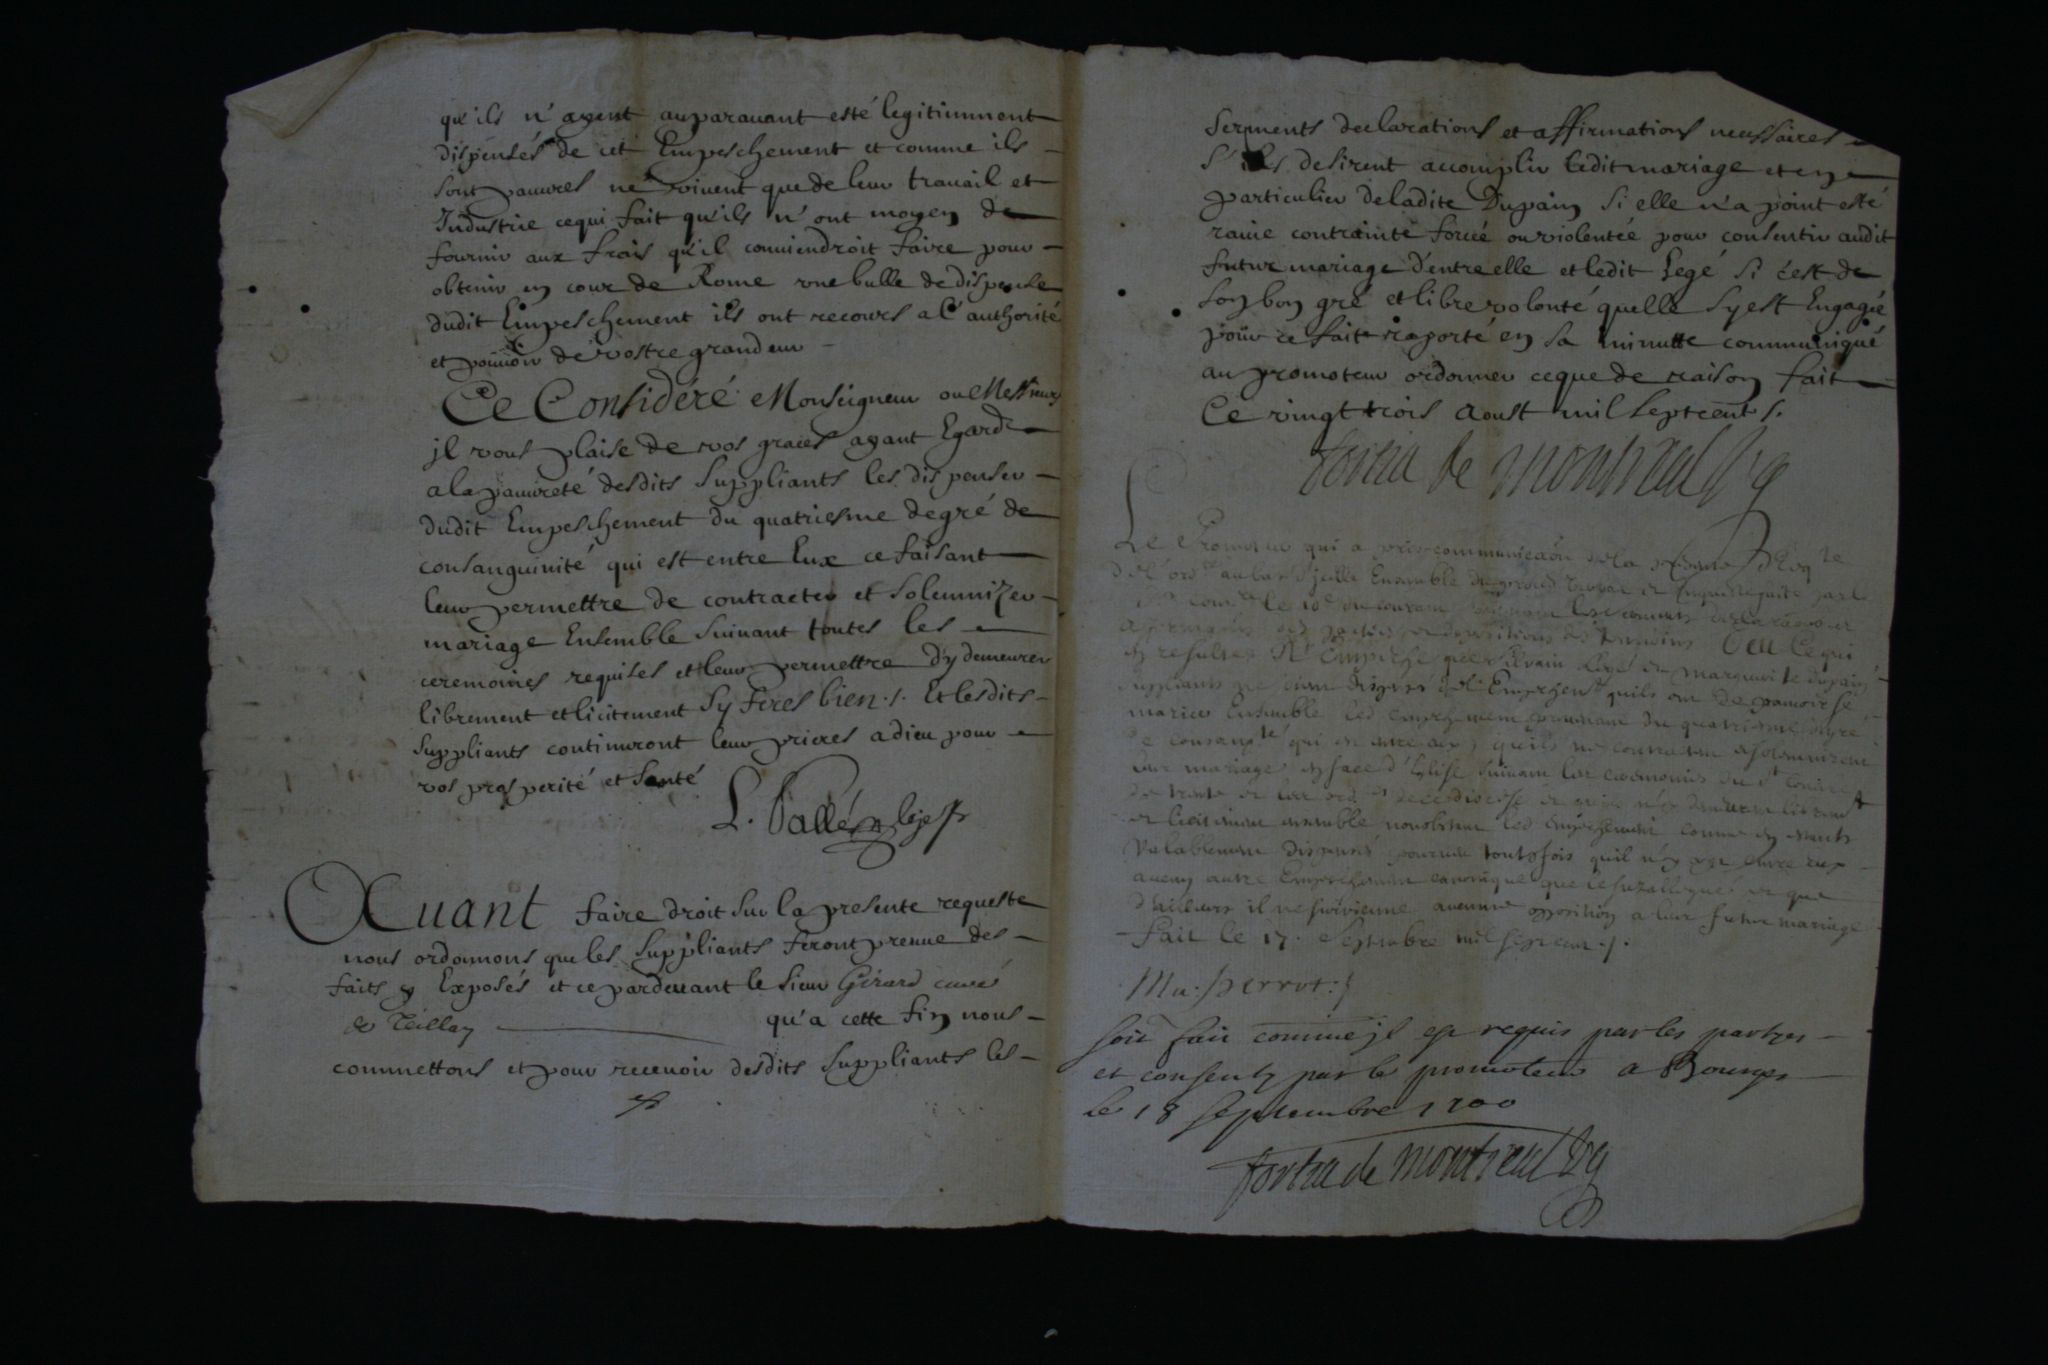 qu'ils n'ayent auparavant esté legitimment
dispensés de cet Empeschement et comme ils
sont pauvres ne vivent que de leur travail et
Industrie cequi fait qu'ils n'ont moyen de
fournir aux frais qu'il conviendroit faire pour
obtenir en cour de Rome une bulle de dispense
dudit Empeschement ils ont recours a l'authorité
et pouvoir de vostre grandeur
Ce Considéré Monseigneur ou Messieurs
il vous plaise de vos graces ayant Egard
a la pauvreté desdits Suppliants les dispenser
dudit Empeschement du quatriesme degré de
consanguinité qui est entre Eux ce faisant
leur permettre de contracter et Solemnizer
mariage Ensemble suivant toutes les
ceremonies requises et leur permettre d'y demeurer
librement et licitement Sy feres bien ./. Et lesdits
Suppliants continuront leur prieres a dieu pour
vos prosperité et Santé
L. Vallée
Avant faire droit sur la presente requeste
nous ordonnons que les Suppliants feront preuve des
faits Exposés et ce pardevant le sieur Girard curé
de Teillay qu'a cette fin nous
commettons et pour recevoir desdits Suppliants les
Serments declarations et affirmations necessaires
S'ils desirent accomplir ledit mariage et en
particulier de ladite Dupain Si elle n'a point esté
ravie contrainte forcée ou violentée pour consentir audit
futur mariage d'entre elle et ledit Legé Si c'est de
son bon gré et libre volonté quelle Sy est Engagée
pour ce fait raporté en sa minutte communiqué
au promoteur ordonner ceque de raison fait
Ce vingt trois Aoust mil Sept cents.
fortia de montreal Vg
Le Promoteur qui a pris communicaon de la
de l'ord au bas d'jcelle Ensemble du procez verbal et Enqueste faite par le
le 10e du courant les
des parties et depositions des temoins Veu Ce qui
en resulte N'Empesche que Silvain Legé et Marguerite dupain
suppliants ne soient dispensés de l'Empeschent quils ont de pouvoir se
marier Ensemble led empeschement provenant du quatriesme degré
de consangte qui est entre eux, quils ne contractent et solemnizent
leur mariage en face d'Eglise suivant les ceremonies du St Concile
de trente et les ord de ce diocese et qu'ils n'y demeurent librement
et licitement ensemble nonobstant led empeschement comme en estants
Valablement dispensés pourveu toutefois quil n'y ayt entre eux
aucun autre Empeschement canonique que le susallegué et que
d'ailleurs il ne survienne aucune opposition a leur futur mariage
fait le 17. Septembre mil sept cent ./.
Perrot
soit fait comme jl est requis par les partyes
et consenty par le promoteur a Bourges
le 18 septembre 1700
fortia de montreal Vg